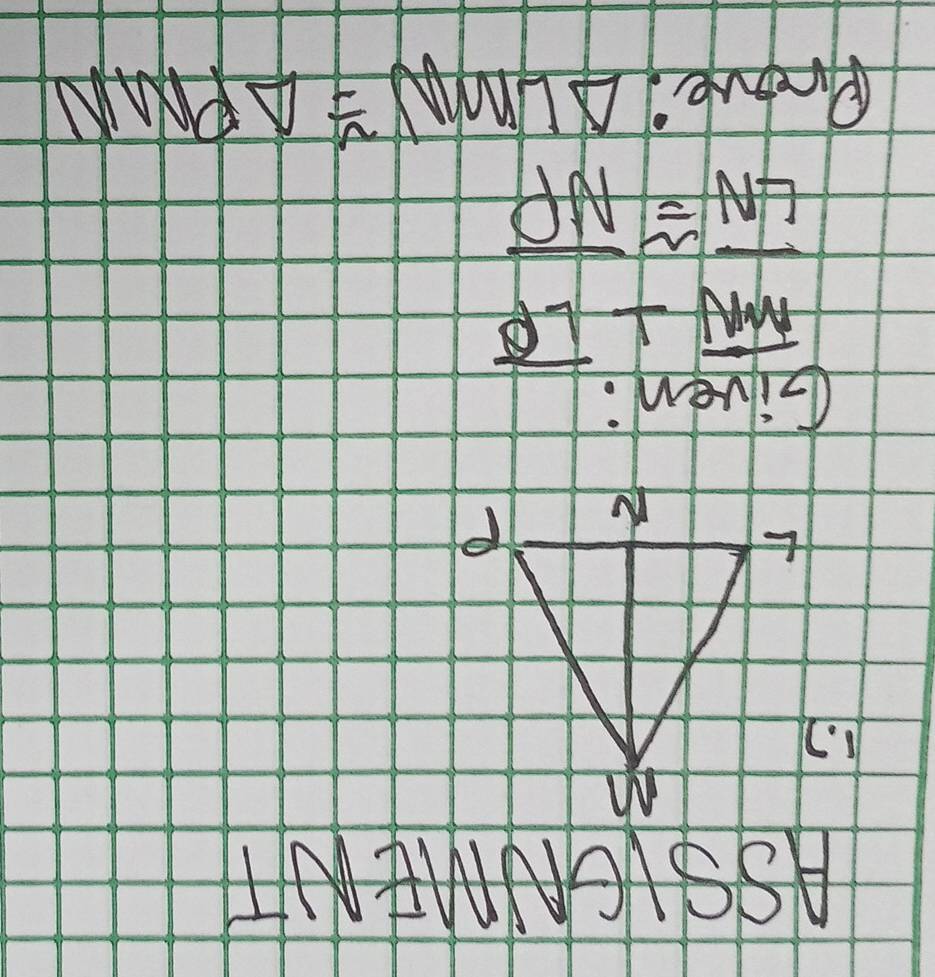 ASSIGNMENT
1.)
M
L N P
Given:
MN ⊥ LP
LN ≅ NP
Prove: Δ LMN ≅ Δ PMN